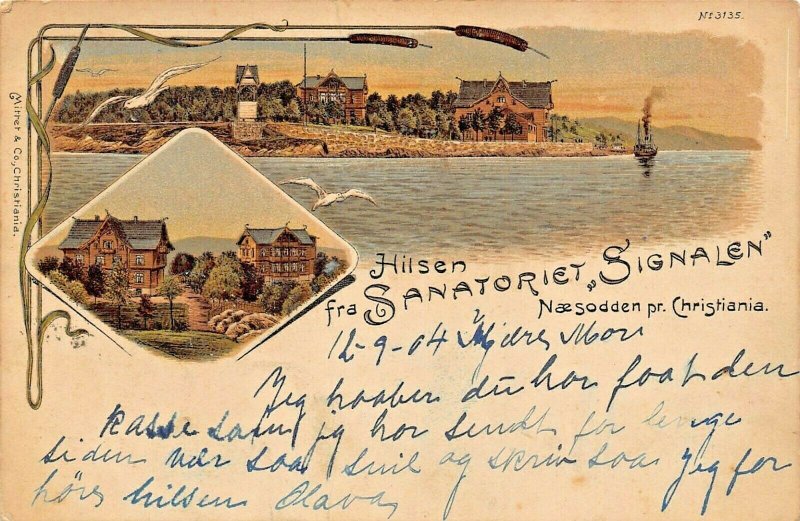 No 3135.
Mittet & Co., Christiania.
Hilsen
fra SANATORIET „SIGNALEN”
Næsodden pr. Christiania.
12-9-04 Kjære Mor
Jeg haaber du har faat den
kasse som jeg har sendt for lenge
siden vær saa snil og skriv saa jeg for
høre hilsen Olava